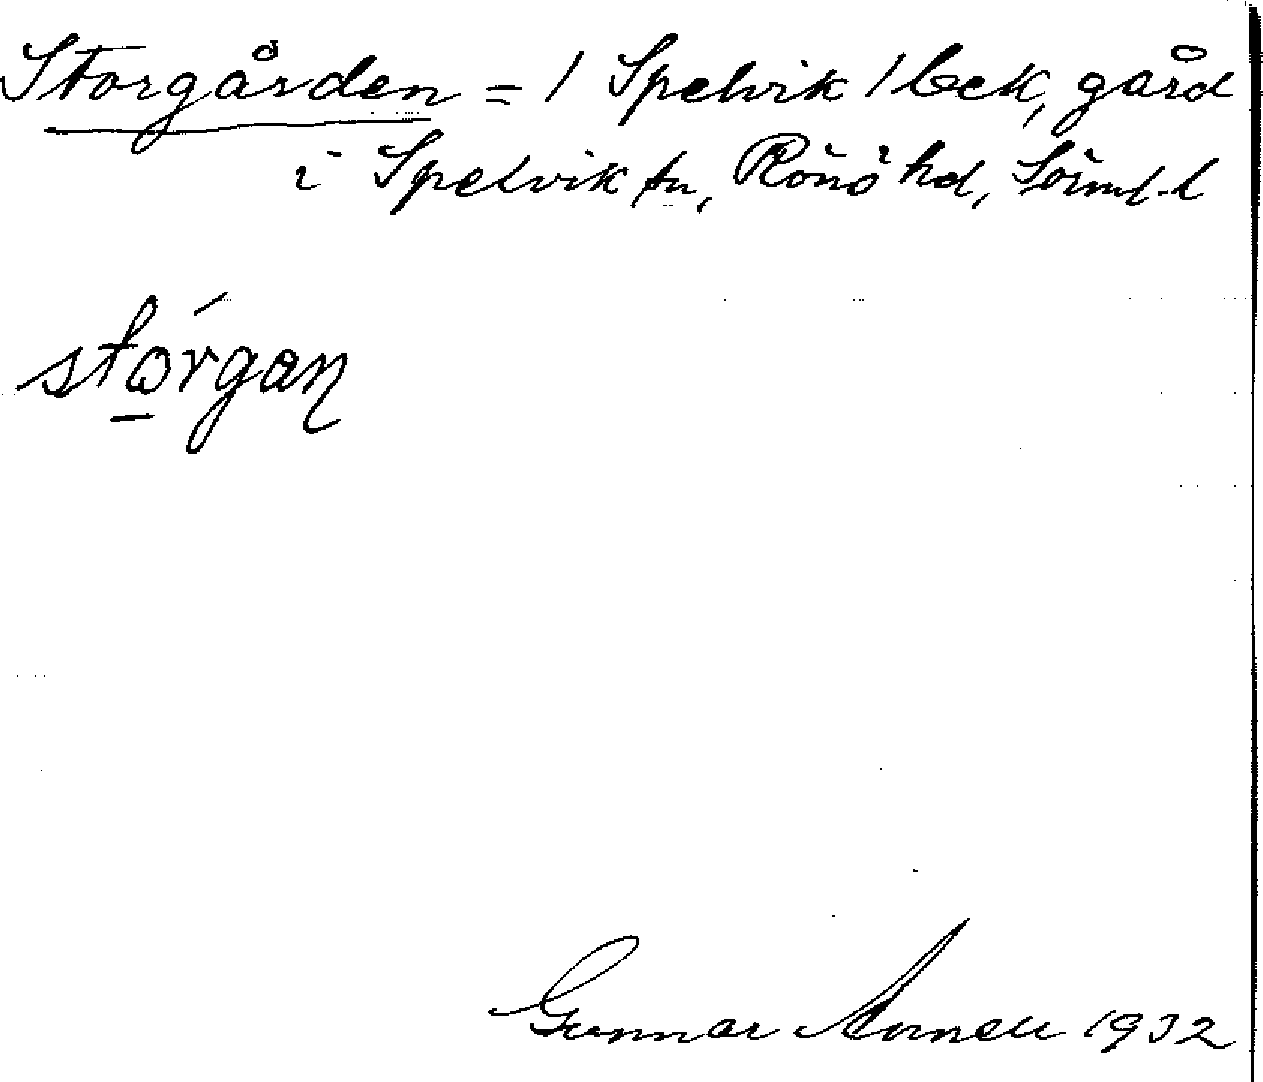 Storgården = / Spelvik / beck, gård
i Spelvik sn, Rönö hd, Sörml. l
stórgan
Gunnar 1932